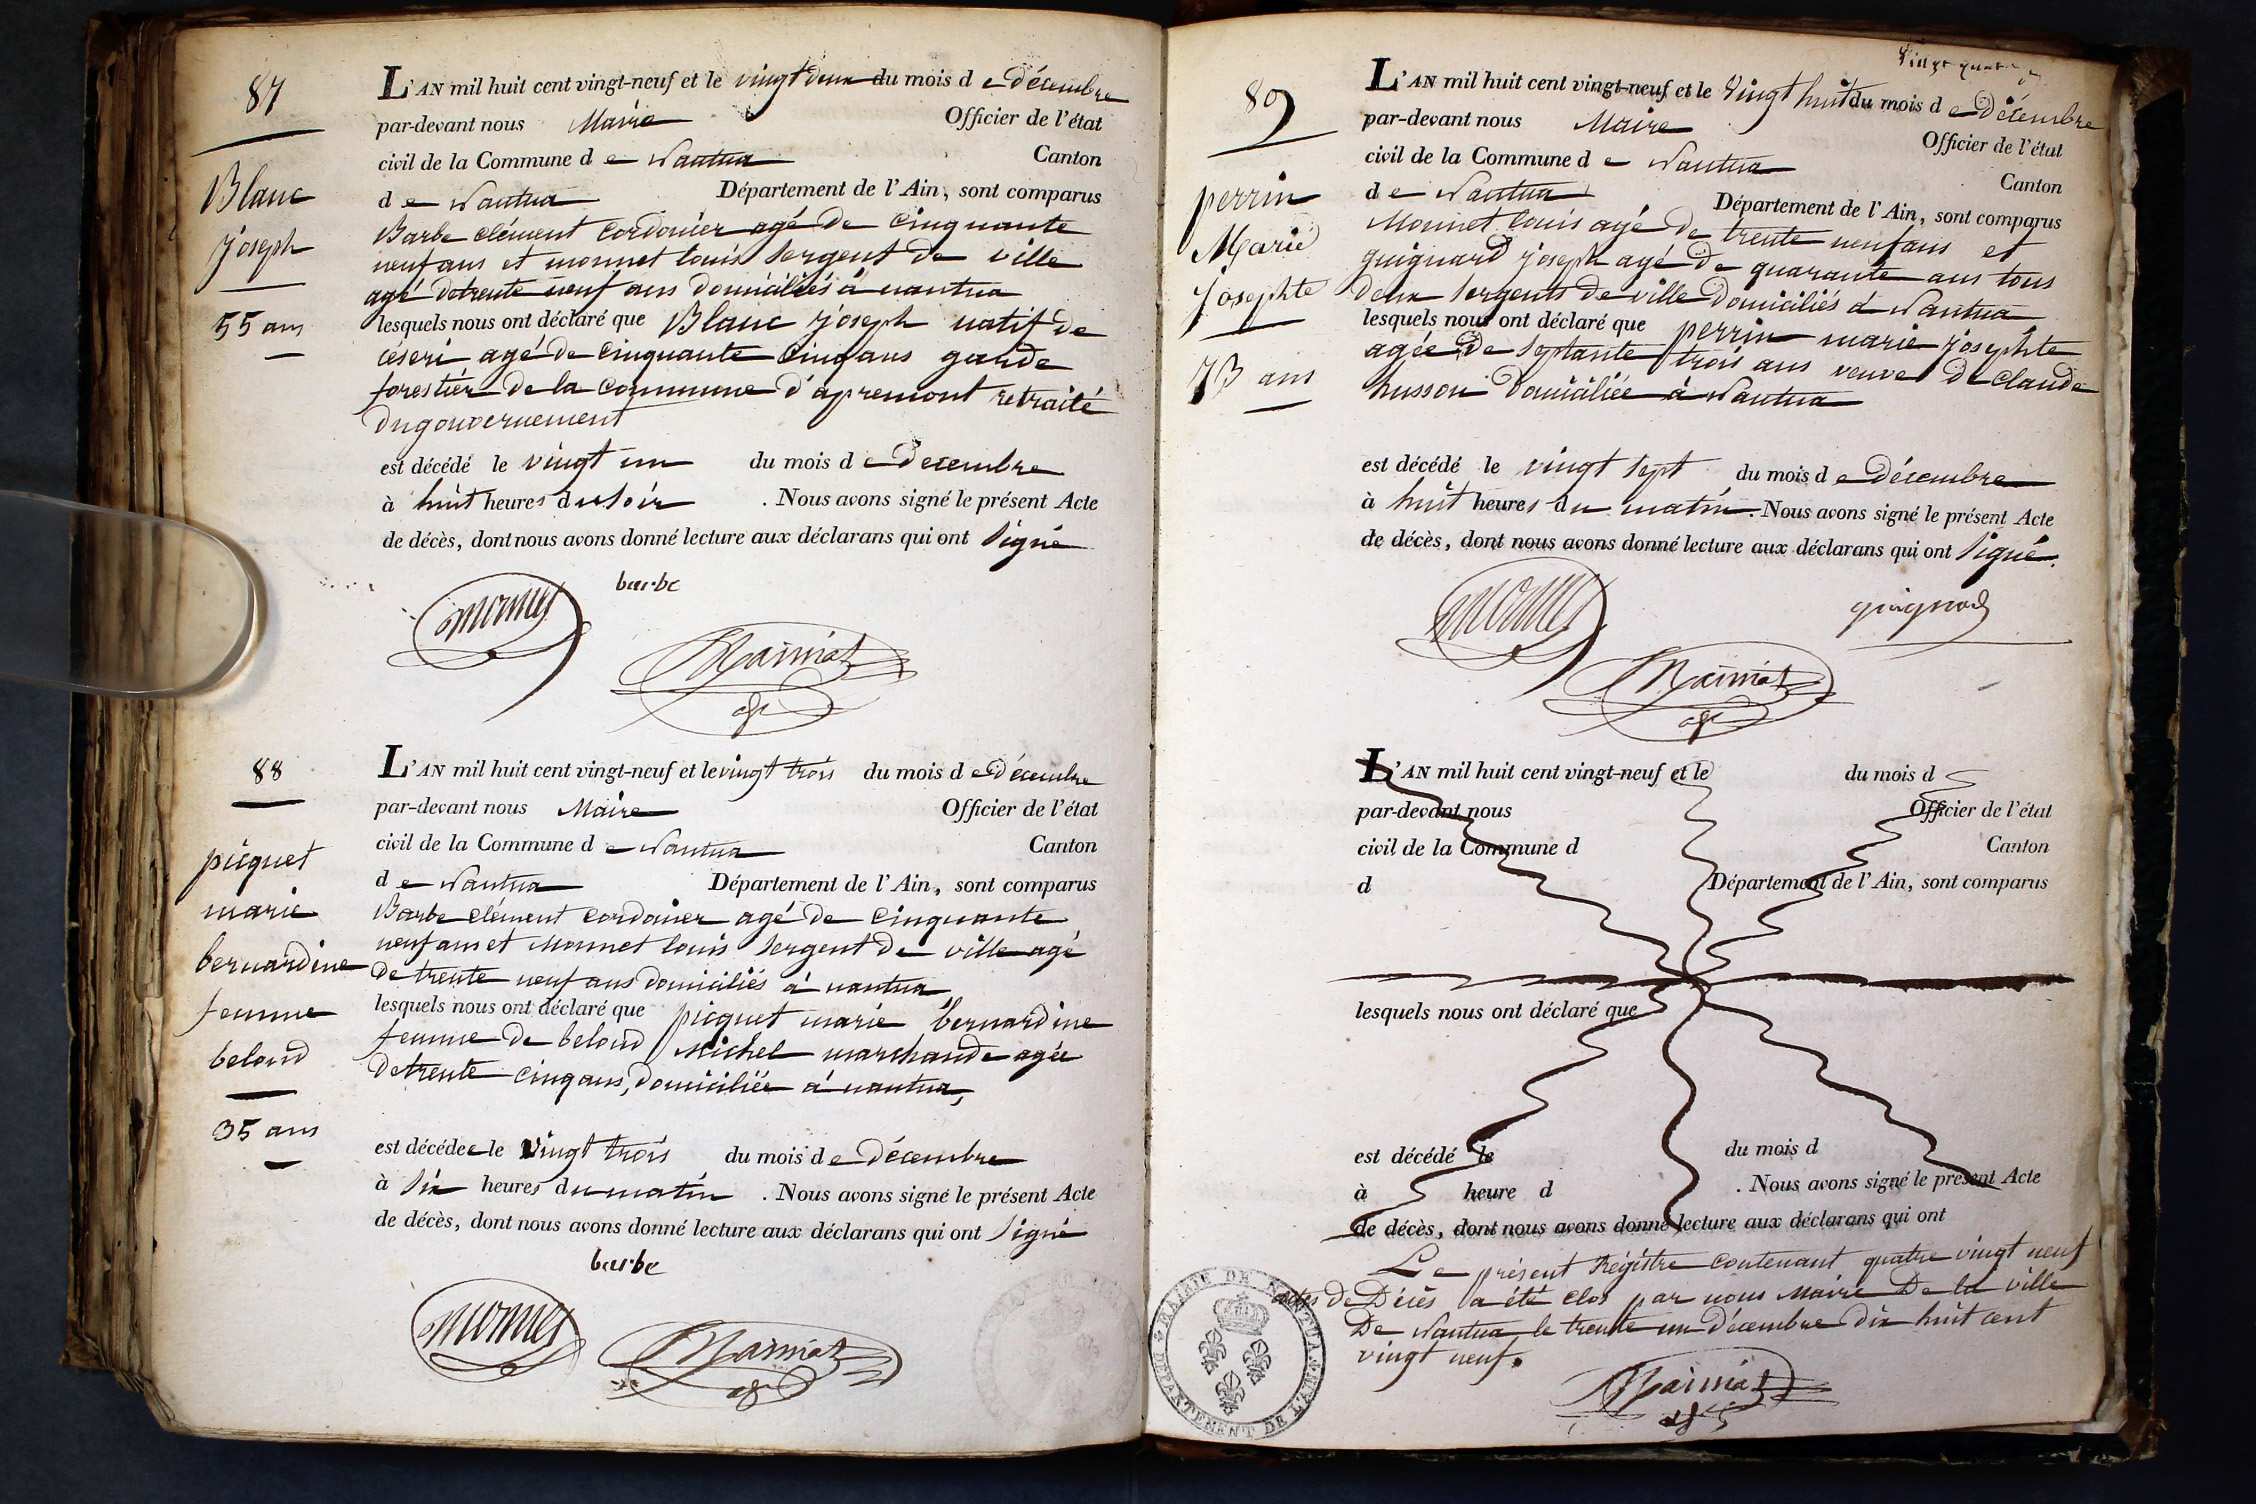 87
Blanc
joseph
55 ans
L'AN mil huit cent vingt-neuf et le vingt deux du mois de décembre
par-devant nous Maire Officier de l'état
civil de la Commune de Nantua Canton
de Nantua Département de l'Ain, sont comparus
Barbe clément cordonier agé de cinquante
neuf ans et monnet louis sergent de ville
agé de trente neuf ans domiciliés à nantua
lesquels nous ont déclaré que Blanc joseph natif de
céseri agé de cinquante cinq ans garde
forestiér de la commune d'apremont retraité
du gouvernement
est décédé le vingt un du mois de decembre
à huit heures du soir . Nous avons signé le présent Acte
de décès, dont nous avons donné lecture aux déclarans qui ont signé
barbe
monnet
88
picquet
marie
bernardine
femme
beloud
35 ans
L'AN mil huit cent vingt-neuf et le vingt trois du mois de décembre
par-devant nous Maire Officier de l'état
civil de la Commune de Nantua Canton
de Nantua Département de l'Ain, sont comparus
Barbe clément cordonier agé de cinquante
neuf ans et Monnet louis sergent de ville agé
de trente neuf ans domiciliés à nantua
lesquels nous ont déclaré que picquet marie bernardine
femme de beloud Michel marchande agée
de trente cinq ans, domiciliée à nantua,
est décédée le vingt trois du mois de décembre
à six heures du matin . Nous avons signé le présent Acte
de décès, dont nous avons donné lecture aux déclarans qui ont signé
barbe
monnet
89
perrin
Marie
josephte
73 ans
L'AN mil huit cent vingt-neuf et le vingt huit du mois de Décembre
par-devant nous Maire Officier de l'état
civil de la Commune de Nantua Canton
de Nantua Département de l'Ain, sont comparus
Monnet louis agé de trente neuf ans et
guignard joseph agé de quarante ans tous
deux sergents de ville domiciliés à Nantua
lesquels nous ont déclaré que perrin marie josephte
agée de septante trois ans veuve de claude
husson domiciliée à Nantua
est décédé le vingt sept du mois de décembre
à huit heures du matin. Nous avons signé le présent Acte
de décès, dont nous avons donné lecture aux déclarans qui ont signé.
monnet
guignard
L'AN mil huit cent vingt-neuf et le du mois d
par-devant nous Officier de l'état
civil de la Commune d Canton
d Département de l'Ain, sont comparus
lesquels nous ont déclaré que
est décédé le du mois d
à heure d . Nous avons signé le présent Acte
de décès, dont nous avons donné lecture aux déclarans qui ont
Le présent Régistre contenant quatre vingt neuf
actes de Décès a été clos par nous Maire De la ville
De Nantua le trente un décembre dix huit cent
vingt neuf.
MAIRIE DE NANTUA DÉPARTEMENT DE L'AIN